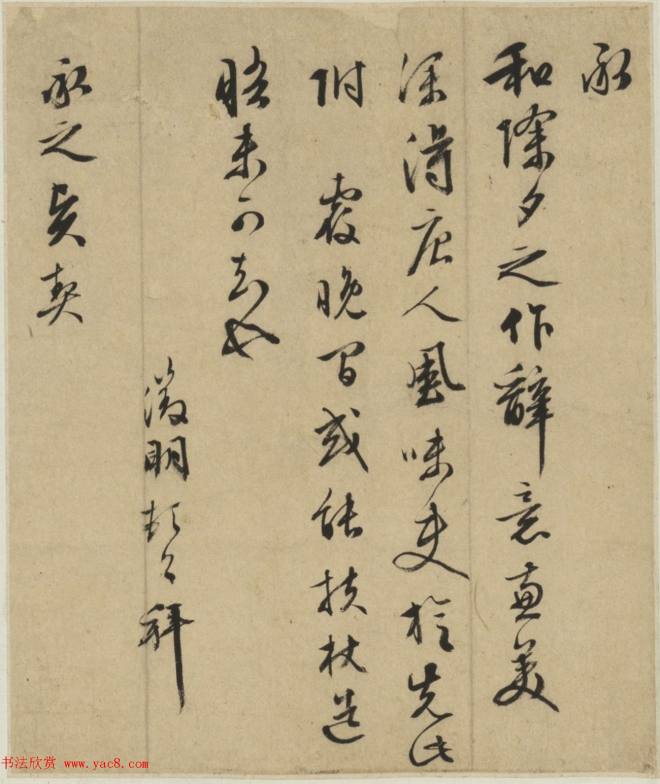 承
和除夕之作辭意兼美
深得唐人風味先此
附 覆晚間或能扶杖造
晤未可知也
徵明頓首拜
永之賢契
书法欣赏 www.yac8.com